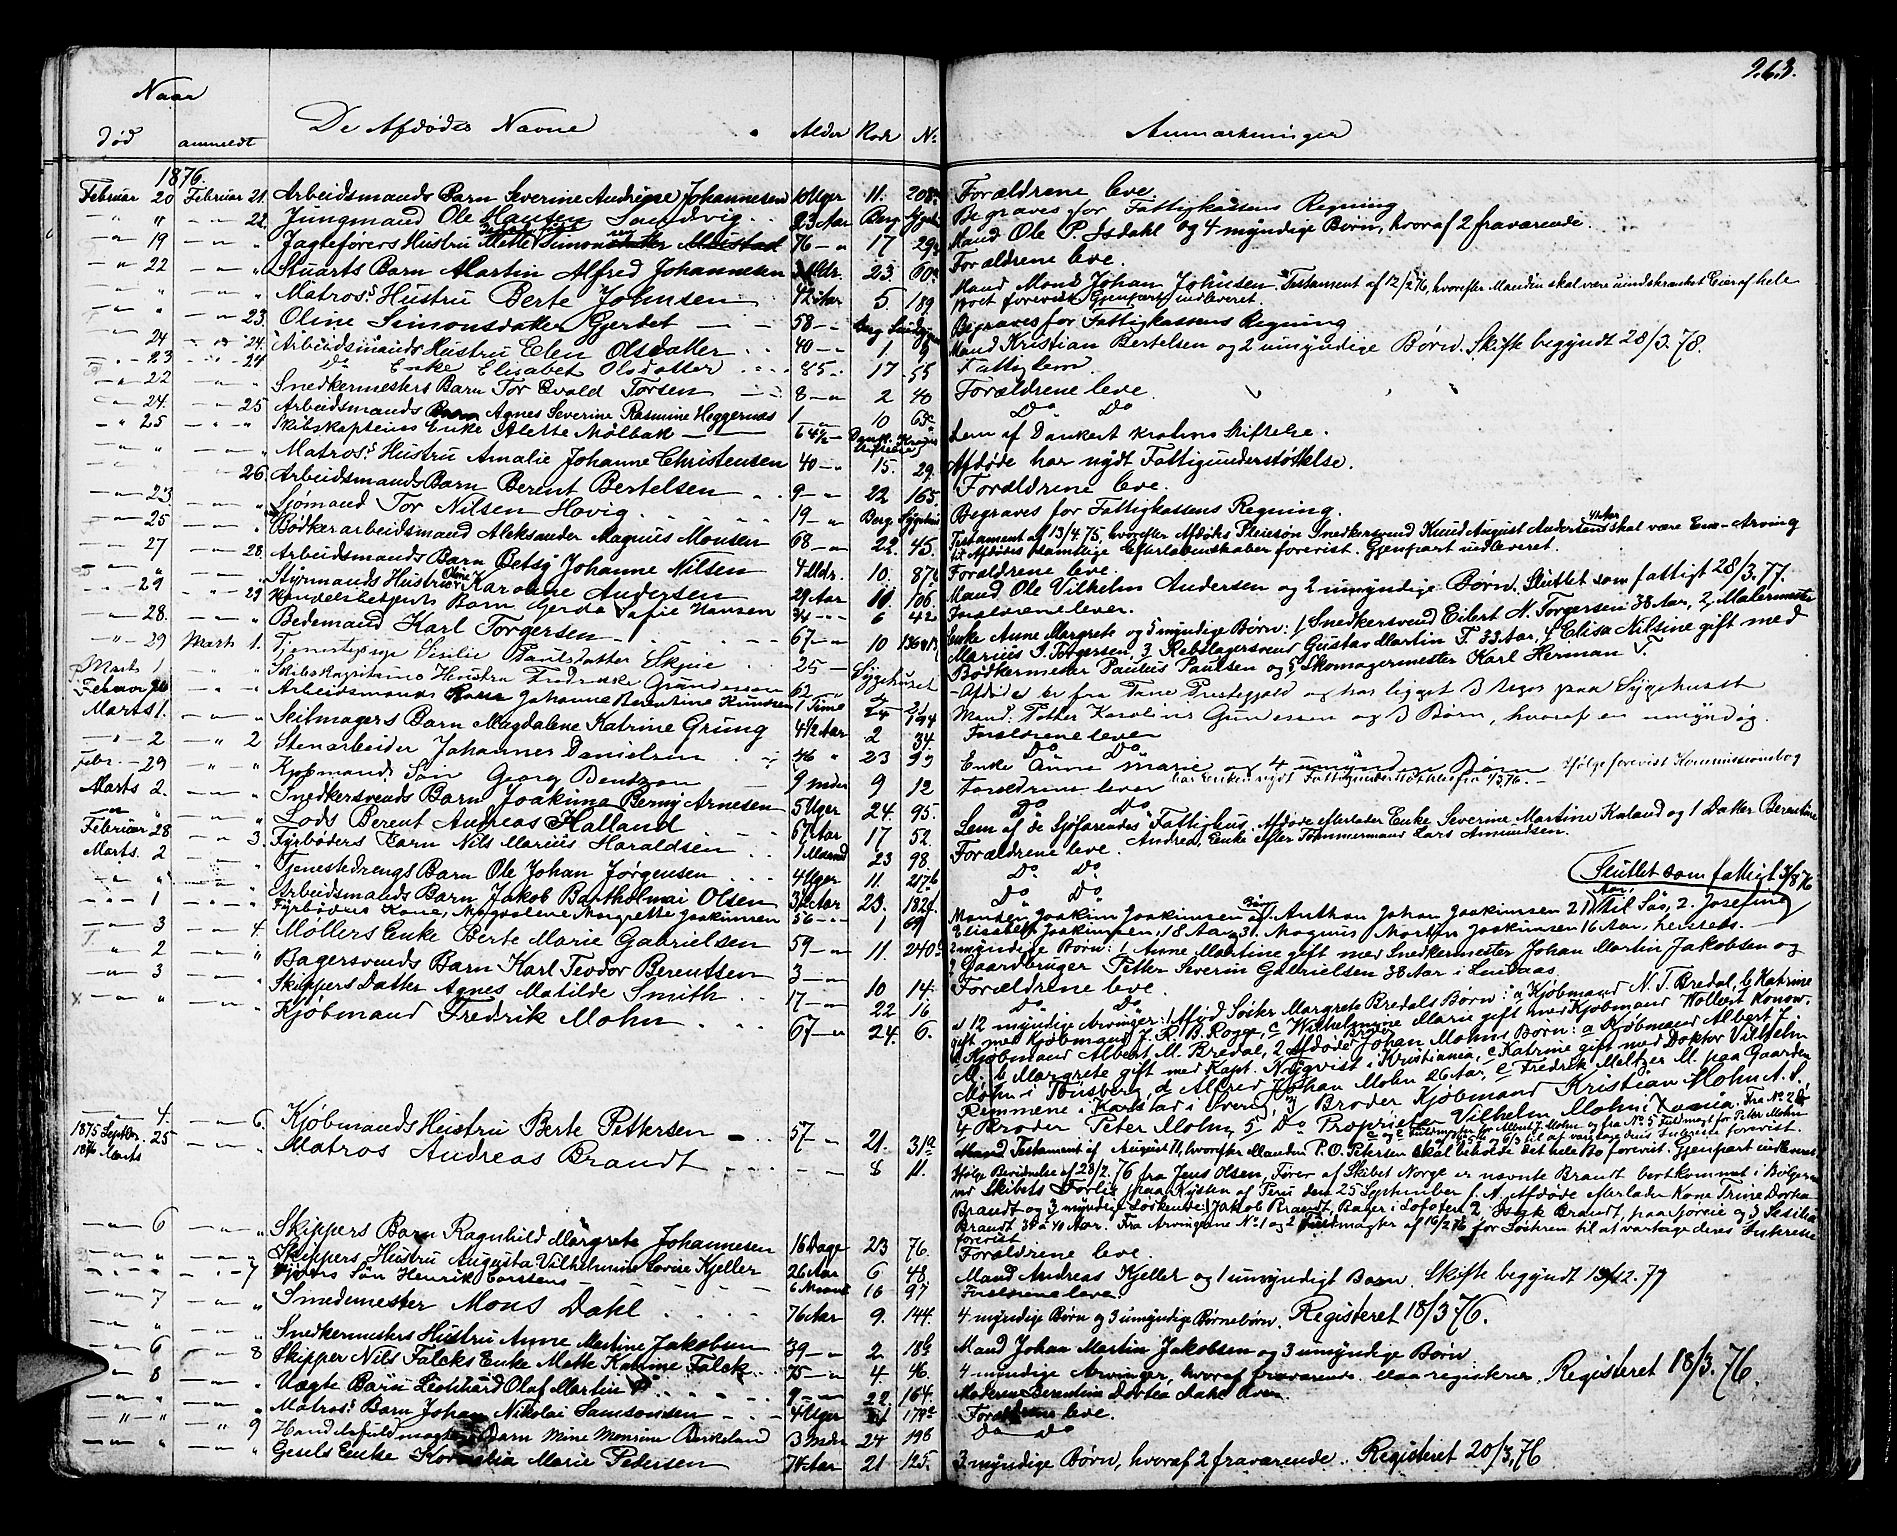 263.
Naar
Død anmeldt De Afdødes Navne Alder Rode No Anmærkninger
1876.
Februar 20 Februar 21. Arbeidsmands Barn Severine Andrine Johannesen 10 Uger 11. 208 Forældrene leve
22. Jungmand Ole Hansen Sandvig 23 Aar Berg. Sygeh. Begraves for Fattigkassens Regning
19 Jagteførers Hustru Mette Simonsdatter 76 17 29 Mand Ole P. Isdahl og 4 myndige Børn, hvoraf 2 fraværende.
22 Stuarts Barn Martin Alfred Johannesen Mdr. 23 60 Forældrene leve.
Matros's Hustru Berte Johnsen 42 Aar 5. 189 Mand Mons Johan Johnsen. Testament af 12/2 76, hvorefter Manden skal være uindskrænket Eier af hele
Boet forevist. Gjenpart indleveret.
23. Oline Simonsdatter Gjerdet 58 Begraves for Fattigkassens Regning
24 24. Arbeidsmands Hustru Elen Olsdatter 40 1. 9 Mand Kristian Bertelsen og 2 umyndige Børn. Skifte begyndt 28/3.78.
23 24 Do Enke Elisabet Olsdatter 85 17 55 Fattiglem
22 Snedkermesters Barn Tor Evald Torsen 8 2 40 Forældrene leve
24. 25 Arbeidsmands Barn Agnes Severine Rasmine Heggernæs 1 10 65 Do Do
25 Skibskapteins Enke Alette Mølbak 64½ Dank. Krohns Stiftelse Lem af Dankert Krohns Stiftelse.
Matros's Hustru Amalie Johanne Christensen 40 15. 29. Afdøde har nydt Fattigunderstøttelse.
26. Arbeidsmands Barn Berent Bertelsen 9 22 165. Forældrene leve.
23. Sjømand Tor Nilsen Hovig 19 Berg. Sygehus Begraves for Fattigkassens Regning.
25 Bødkerarbeidsmand Aleksander Magnus Monsen 68 22. 45. Testament af 13/4.75, hvorefter Afdødes Pleiesøn Snedkersvend Knud August Andersen skal være Ene-Arving
til Afdødes samtlige Efterladenskaber forevist. Gjenpart indleveret.
27 28. Arbeidsmands Barn Betsy Johanne Nilsen 4 Mdr. 10. 87 Forældrene leve.
Styrmands Hustru Oline Karoline Andersen 29 Aar 10 106 Mand Ole Vilhelm Andersen og 2 umyndige Børn. Sluttet som fattigt 28/3.77.
29 29 Handelsbetjents Barn Gerda Sofie Hansen 3/4 6 42 Forældrene lever.
28. Bedemand Karl Torgersen 67 10 136 Enke Anne Margrete og 5 myndige Børn: 1 Snedkersvend Eilert N. Torgersen 38 Aar, 2 Malermester
Marius I. Torgersen, 3 Rebslagersvend Gustav Martin T. 33 Aar, 4 Elisa Nilsine gift med
Bødkermester Paulus Paulsen og 5 Skomagermester Karl Herman T.
29 Marts 1. Tjenestepige Sesilie Paulsdatter Skjeie 25 Sygehuset Afdøde er fra Præstegjeld og har ligget 3 Uger paa Sygehuset
Marts 1 Skibskapteins Hustru Fredrikke Gundersen 62 Mand: Petter Karolius Gundersen og 3 Børn, hvoraf en umyndig.
Februar Arbeidsmands Barn Johanne Berentine Knudsen 1 Time 24 194 Forældrene lever
Marts 1. Seilmagers Barn Magdalene Katrine Grung 4½ Aar 2 34. Do Do
2 2 Stenarbeider Johannes Danielsen 46 23 Enke Anne Marie og 4 umyndige Børn
har Enken nydt Fattigunderstøttelse
Febr. 29 Kjøbmands Søn Georg Bentzon 9 Mdr 9 12 Forældrene lever
Marts 2. Snedkersvends Barn Joakima Berny Arnesen 5 Uger 24. 95. Do Do
Lods Berent Andreas Halland 67 Aar 17 52. Lem af de Sjøfarendes Fattighus. Afdøde efterlader Enke Severine Martine Kaland og 1 Datter Berentine
Andrea, Enke efter Tømmermand Lars Amundsen.
Februar 28 3. Fyrbøders Barn Nils Marius Haraldsen 1 Maaned 23 98. Forældrene leve.
Marts. 2 Tjenestedrengs Barn Ole Johan Jørgensen 4 Uger 11. 217 Do Do
Sluttet som fattigt
Arbeidsmands Barn Jakob Bartholmai Olsen 3½ Aar 23. 182 Do Do
1 Fyrbøders Kone, Magdalene Margrette Joakimsen 56 1 69 Manden Joakim Joakimsen. Børn: Anthon Johan Joakimsen 21 Aar, til Søs, 2. Josefine
Elisabeth Joakimsen, 18 Aar, 3. Magnus Martin Joakimsen 16 Aar, hersteds.
3 4 Møllers Enke Berte Marie Gabrielsen 59 11. 240 2 myndige Børn: 1 Anne Martine gift med Snedkermester Johan Martin Jakobsen og
2 Gaardbruger Petter Severin Gabrielsen 38 Aar i Lindaas.
2 Bagersvends Barn Karl Teodor Berentsen 3 10 14. Forældrene leve.
3 Skippers Datter Agnes Matilde Smith 17 22 16 Do Do
Kjøbmand Fredrik Mohn 67 24. 6. 12 myndige Arvinger: 1 Afdød Søster Margrete Bredals Børn: a Kjøbmand N. T. Bredal, b Katrine
gift med Kjøbmand J. R. B. Rogge, c Wilhelmine Marie gift med Kjøbmand Wollert Konow,
d Kjøbmand Albert M. Bredal, 2 Afdøde Broder Johan Mohns Børn: a Kjøbmand Albert J.
M., b Margrete gift med Kapt. Nyqvist i Kristiania, c Katrine gift med Doktor Vilhelm
Mohn i Tønsberg, d Alfred Johan Mohn 26 Aar, e Fredrik Meltzer M. paa Gaarden
Remmene i Karlstad i Sverig, 3 Broder Kjøbmand Kristian Mohn A. S.
4 Broder Peter Mohn, 5 Do Proprietær Vilhelm Mohn
4. 6. Kjøbmands Hustru Berte Pettersen 57 21. 31 Mand Testament af August 71, hvorefter Manden P. O. Petersen skal beholde det hele Bo forevist. Gjenpart indleveret
1875 Septbr. 25 Matros Andreas Brandt 8 11. Ifølge Beretning af 28/2.76 fra Jens Olsen, Fører af Skibet Norge er nævnte Brandt bortkommet i Bølgerne
1876 Marts
ved Skibets Forlis paa Kysten af Peru den 25 September f. A. Afdøde efterlader Kone Trine Dortea
Brandt og 3 myndige Søskende: 1 Jakob Brandt, Bager i Lofoten 2, Isak Brandt, paa og 3 Sesilia
Brandt 38 à 40 Aar. Fra Arvingerne No 1 og 2 Fuldmagter af 16/2.76 for Søstren til at vartage deres Interesse
forevist.
6 Skippers Barn Ragnhild Margrete Johannesen 16 Dage 23 76. Forældrene leve.
Skippers Hustru Augusta Vilhelmine Lovise Kjeller 26 Aar 6 48 Mand Andreas Kjeller og 1 umyndigt Barn. Skifte begyndt 12.77
7 Søn Henrik 6 Maaned 16 97 Forældrene leve.
7 Smedemester Mons Dahl 76 Aar 9. 144. 4 myndige Børn og 3 umyndige Børnebørn. Registeret 18/3 76.
6 Snedkermesters Hustru Anne Martine Jakobsen 39 2 18 Mand Johan Martin Jakobsen og 3 umyndige Børn
6 8 Skipper Nils Falcks Enke Mette Katrine Falck 75 4 46 4 myndige Arvinger, hvoraf fraværende. Maa registeres. Registeret 18/3.76.
8 Vægte Barn Leonhard Olaf Martin 9 22. 164. Moderen Berentine Dortea
Matros's Barn Johan Nikolai Samsonsen 4 Uger 179 Forældrene leve.
9 Handelsfuldmægtigs Barn Mine Monsine Birkeland 3 Mdr 24 196 Do Do
Gesels Enke Kornelia Marie Pedersen 74 Aar 21 125. 3 myndige Børn, hvoraf 2 fraværende. Registeret 20/3,76